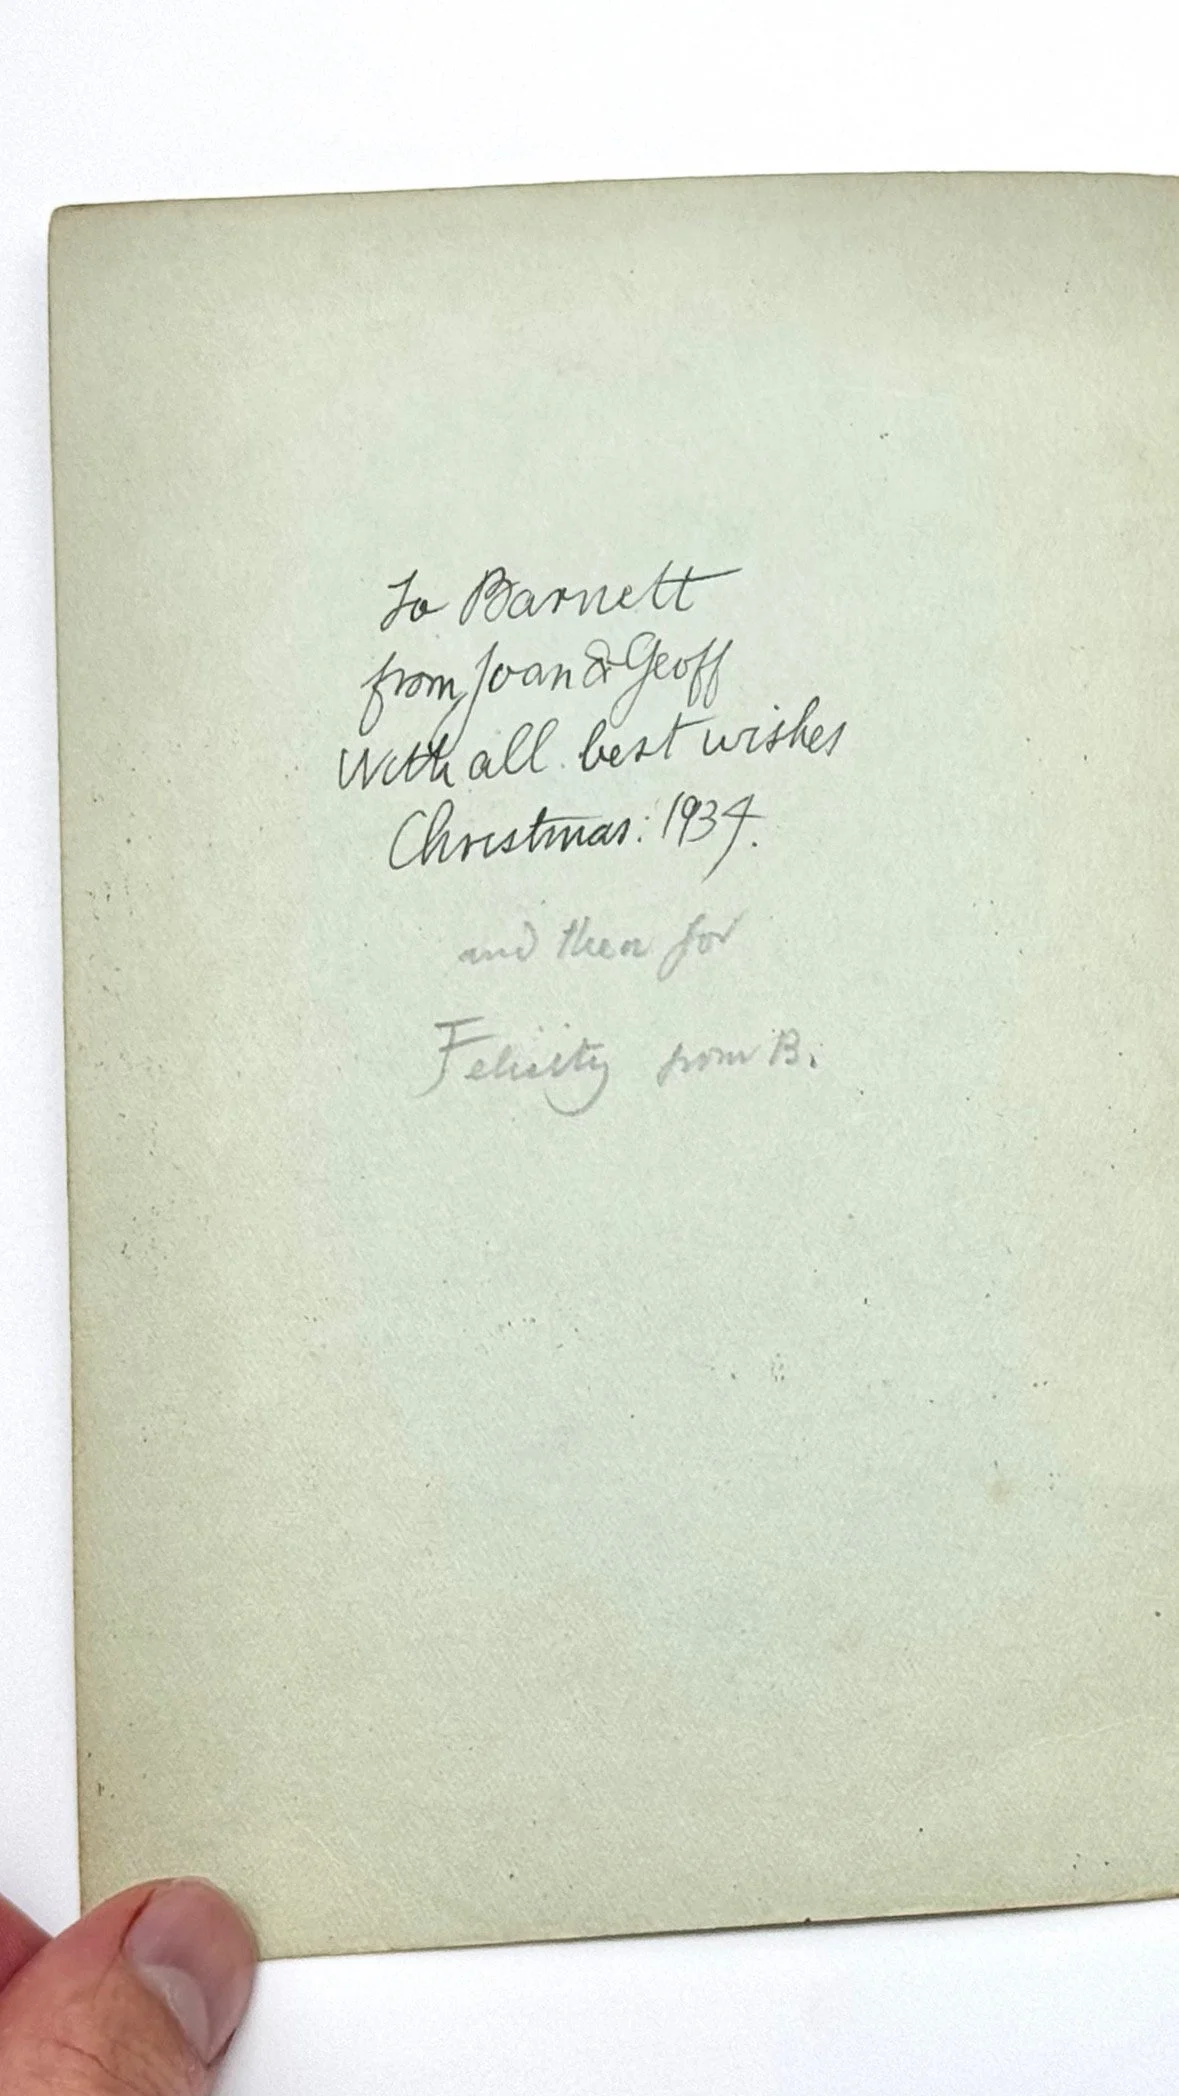 To Barnett
from Joan & Geoff
With all best wishes
Christmas: 1934.
and then for
Felicity from B.